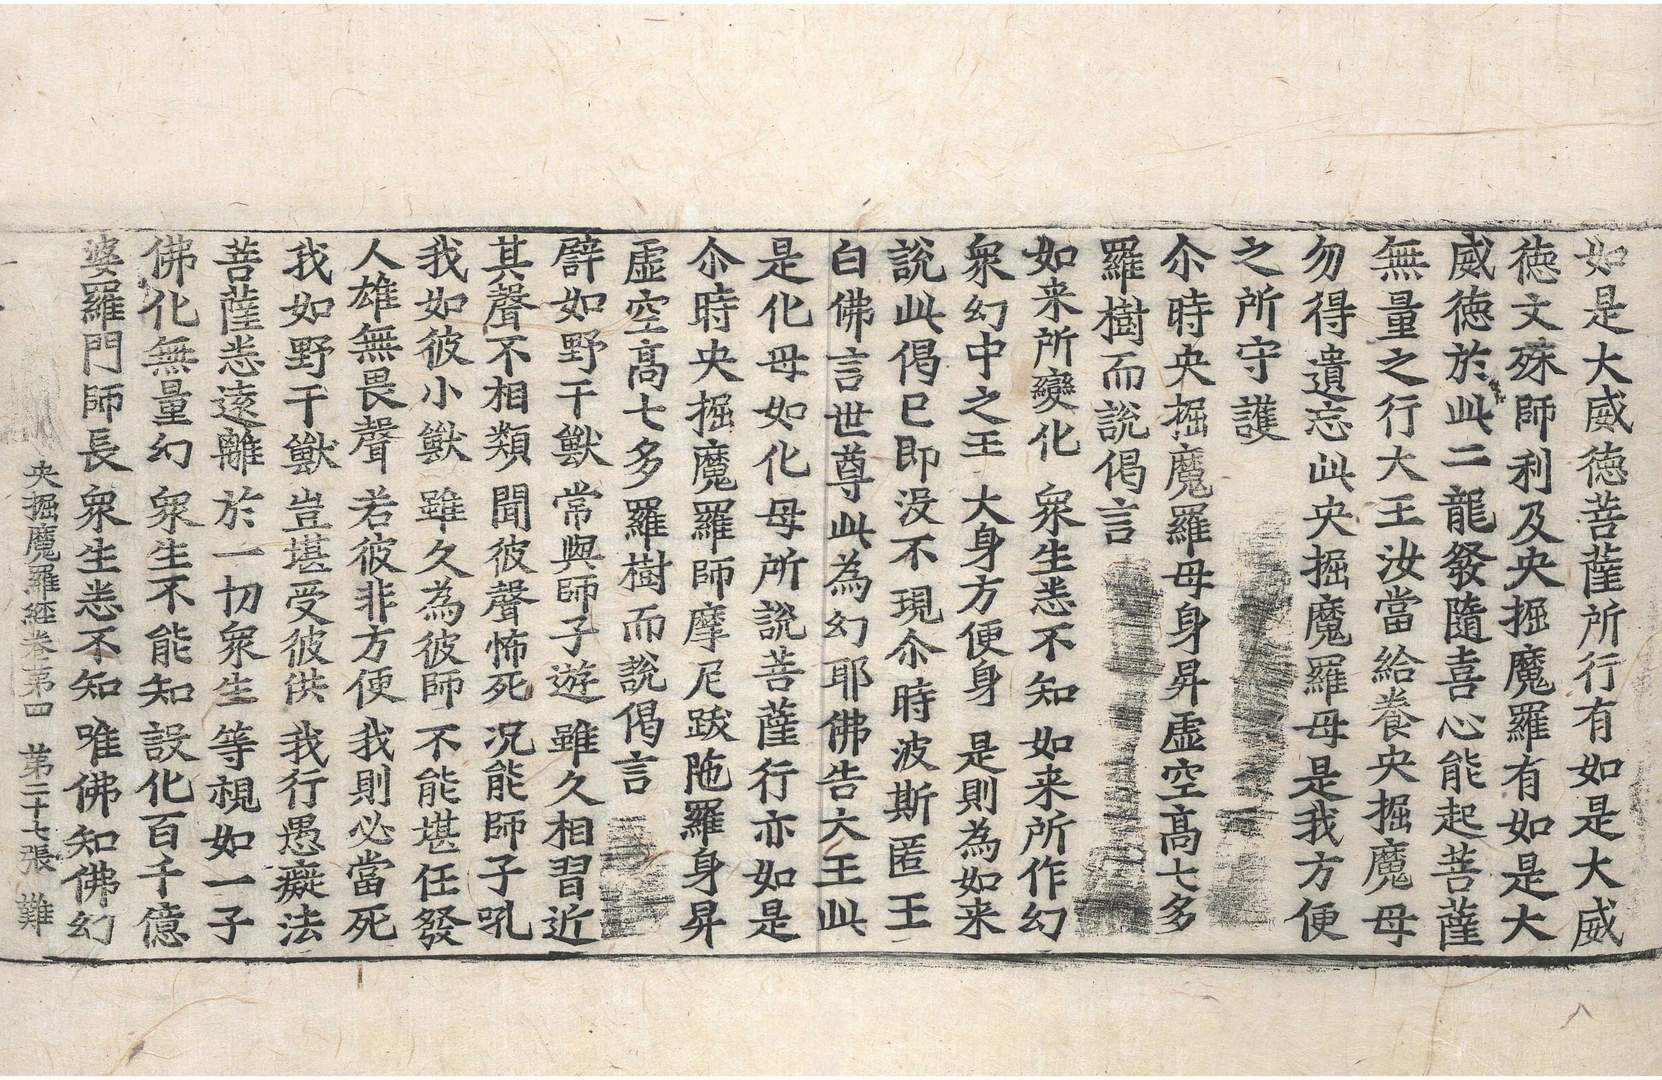 如是大威德菩薩所行有如是大威
德文殊師利及央掘魔羅有如是大
威德於此二龍發隨喜心能起菩薩
無量之行大王汝當給養央掘魔母
勿得遺忘此央掘魔羅母是我方便
之所守護
尒時央掘魔羅母身昇虛空高七多
羅樹而說偈言
如来所變化 衆生悉不知 如来所作幻
衆幻中之王 大身方便身 是則為如来
說此偈已即没不現尒時波斯匿王
白佛言世尊此為幻耶佛告大王此
是化母如化母所說菩薩行亦如是
尒時央掘魔羅師摩尼跋陁羅身昇
虛空高七多羅樹而說偈言
譬如野干獸 常與師子遊 雖久相習近
其聲不相類 聞彼聲怖死 况能師子吼
我如彼小獸 雖久為彼師 不能堪任發
人雄無畏聲 若彼非方便 我則必當死
我如野干獸 豈堪受彼供 我行愚癡法
菩薩悉遠離 於一切衆生 等視如一子
佛化無量幻 衆生不能知 設化百千億
婆羅門師長 衆生悉不知 唯佛知佛幻
央掘魔羅經卷第四 第二十七張 難